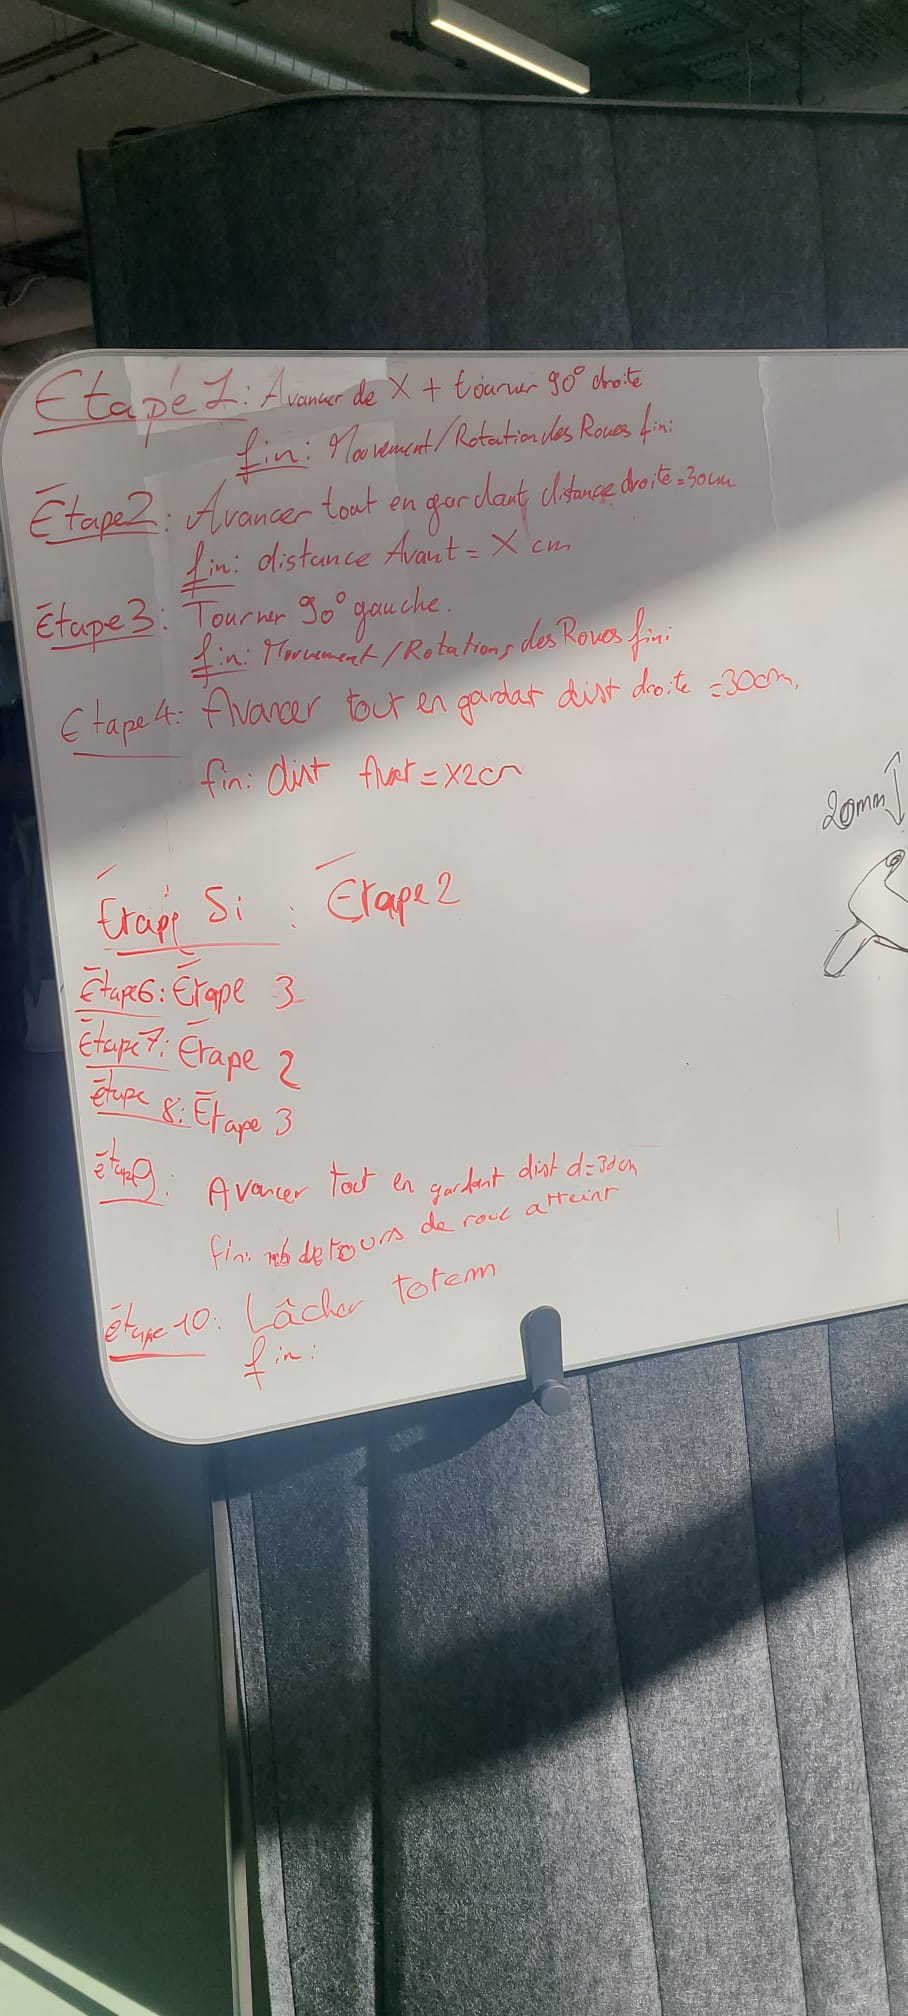 Etape 1: Avancer de X + tourner 90° droite
fin: Mouvement/Rotation des Roues fini
Étape2: Avancer tout en gardant distance droite=30cm
fin: distance Avant= X cm
Étape3: Tourner 90° gauche.
fin: Mouvement/Rotations des Roues fini
Etape4: Avancer tout en gardat dist droite =30cm.
fin: dist Avat=X2cm
20mm
Étape 5: Étape2
Étape6: Étape 3
Étape7: Étape 2
étape 8: Étape 3
étape9: Avancer tout en gardant dist d=30cm
fin: nb de tours de roue atteint
étape 10: Lâcher totem
fin: